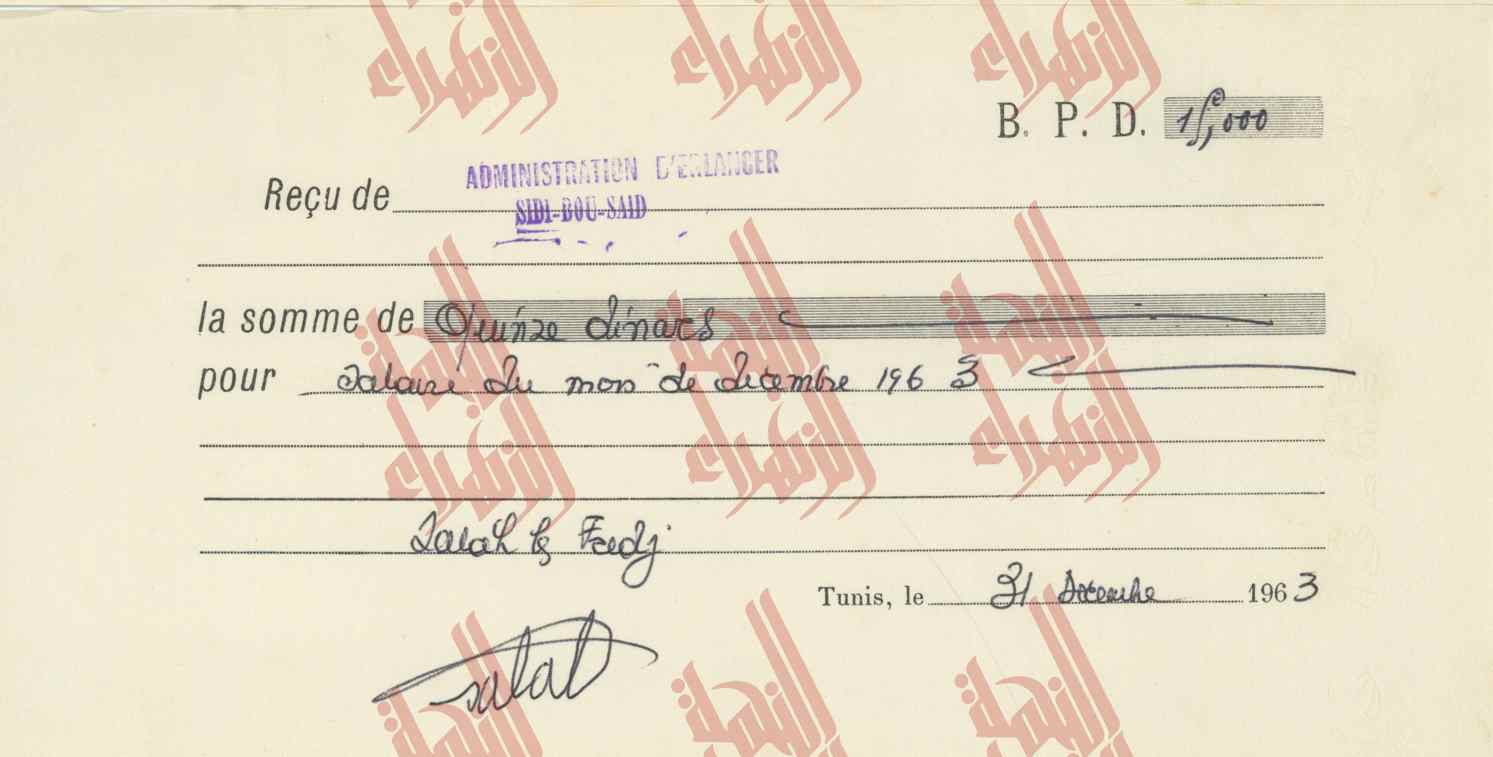 B. P. D. 15,000
Reçu de ADMINISTRATION D'ERLANGER
SIDI-BOU-SAID
la somme de Quinze dinars
pour Salaire du mois de decembre 1963
Salah b Fadj
Tunis, le 31 Decembre 1963
Salah